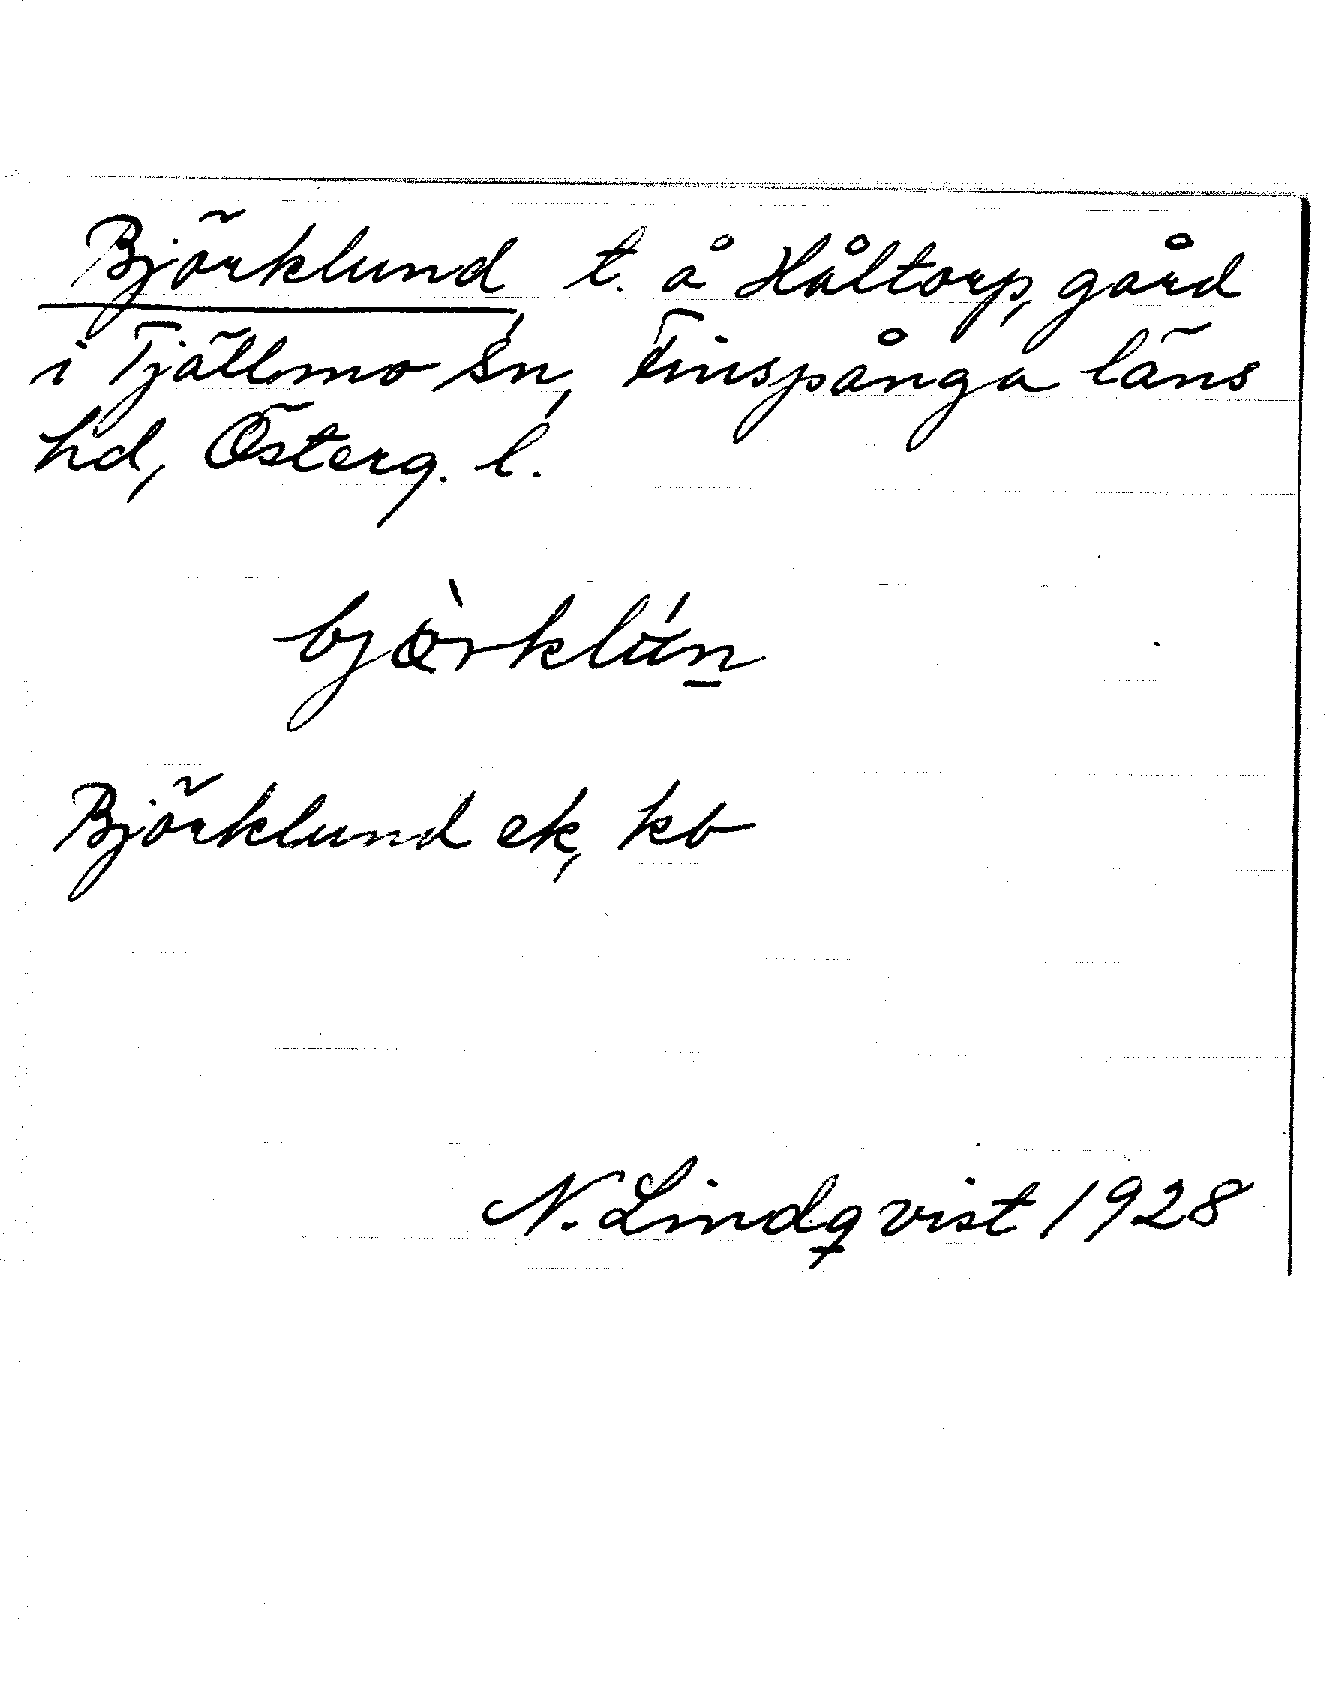 Björklund, t. å Håltorp, gård
i Tjällmo sn, Finspånga läns
hd, Österg. l.
bjòrklún
Björklund ek, kb
N. Lindqvist 1928